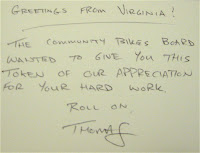 GREETINGS FROM VIRGINIA!
THE COMMUNITY BIKES BOARD
WANTED TO GIVE YOU THIS
TOKEN OF OUR APPRECIATION
FOR YOUR HARD WORK.
ROLL ON.
THOMAS